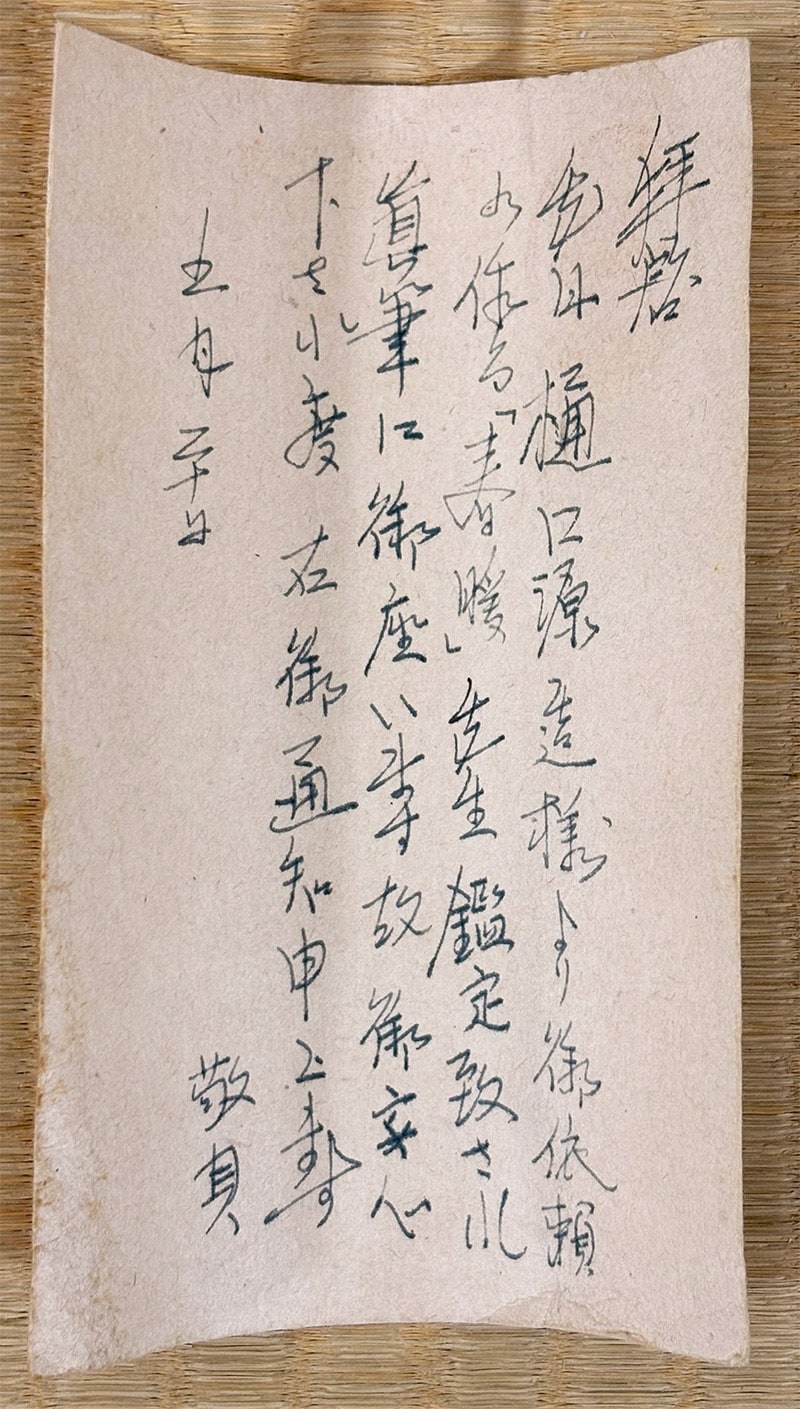 拝啓
先日 樋口源造様より御依頼
に係る「春暖」先生鑑定致され
眞筆に御座います故 御安心
下され度 右御通知申上ます
五月二十日 敬具